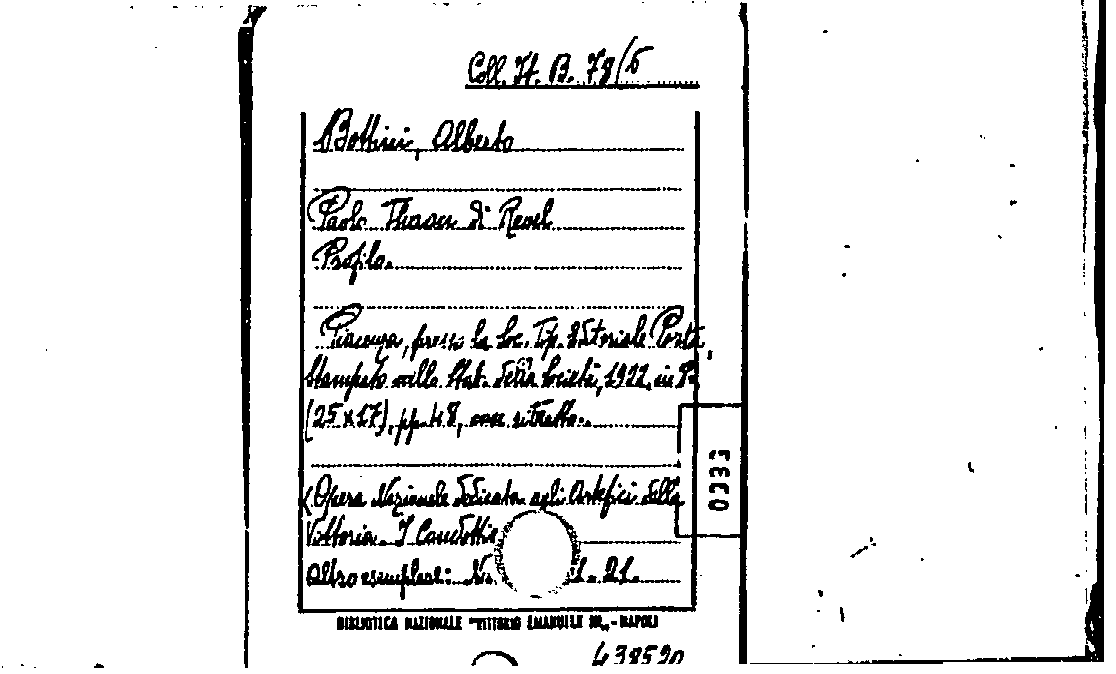 Coll. It. B. 78/5
Bottini, Alberto
Paolo Thaon di Revel
Profilo.
Piacenza, presso la Soc. Tip. Editoriale Porta,
Stampato nello Stab. della Società, 1922, in 8°
(25x17), pp. 48, con ritratto.
(Opera Nazionale dedicata agli Artefici della
Vittoria. I Condottie
Altro esemplare: 21.
0335
BIBLIOTECA NAZIONALE "VITTORIO EMANUELE III„ - NAPOLI
438520